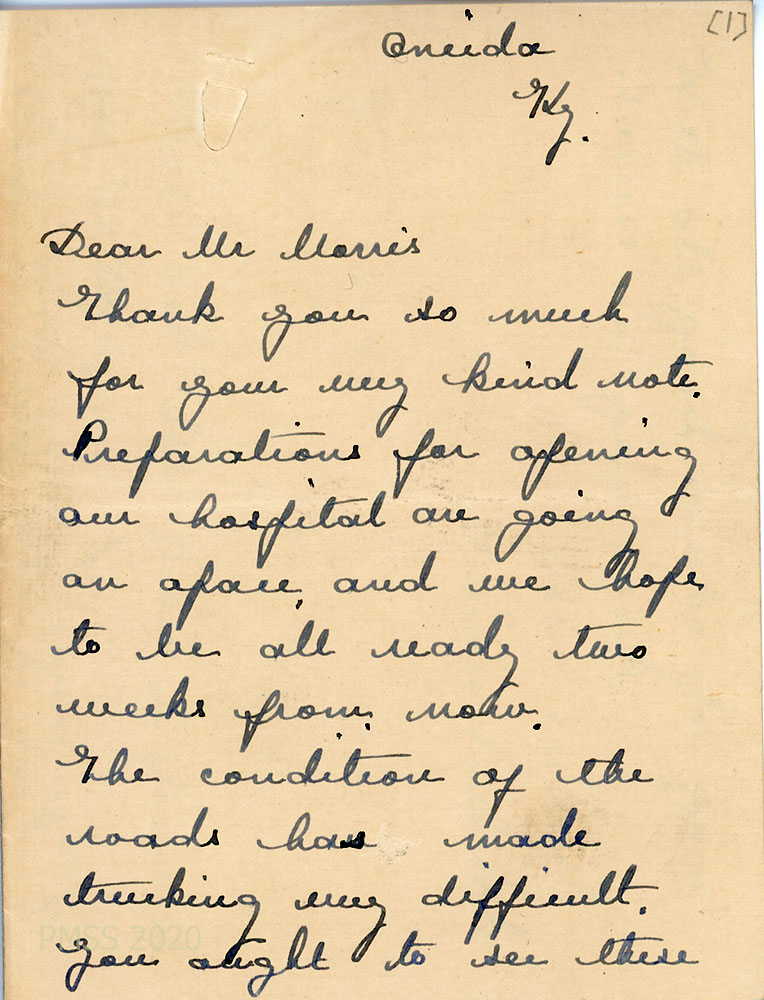 [1]
Oneida
Ky.
Dear Mr Morris
Thank you so much
for your very kind note.
Preparations for opening
our hospital are going
on apace, and we hope
to be all ready two
weeks from now.
The condition of the
roads has made
trucking very difficult.
You ought to see these
PMSS 2020